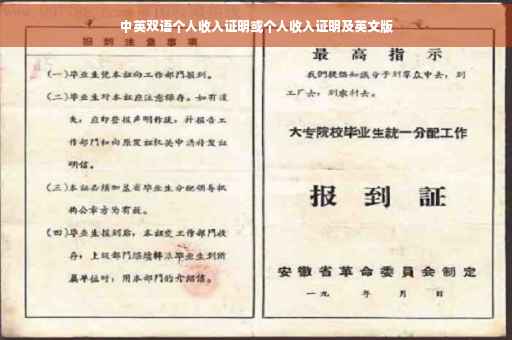 中英双语个人收入证明或个人收入证明及英文版
报到注意事项
(一)毕业生凭本证向工作部门报到。
(二)毕业生对本证应注意保存。如有遗
失,应即登报声明作废,并报告工
作部门和向原发证机关申请补发证
明信。
(三)本证必须加盖省毕业生分配领导机
构公章方为有效。
(四)毕业生报到后,本证交工作部门收
存;上级部门继续转派毕业生到所
属单位时,用本部门的介绍信。
最高指示
我们提倡知识分子到群众中去,到
工厂去,到农村去。
大专院校毕业生统一分配工作
报到証
安徽省革命委員会制定
一九 年 月 日